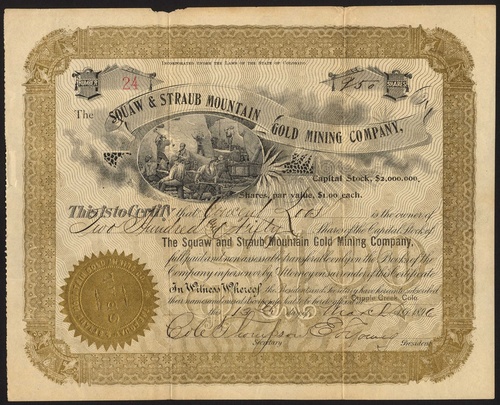 INCORPORATED UNDER THE LAWS OF THE STATE OF COLORADO.
NUMBER 24
SHARES
The SQUAW & STRAUB MOUNTAIN
GOLD MINING COMPANY,
Capital Stock, $2,000,000,
Shares, par value, $1.00 each.
This Is to Certify that Conrad Roos is the owner of
Two Hundred & Fifty Shares of the Capital Stock of
The Squaw and Straub Mountain Gold Mining Company,
full paid and non assessable transferable only on the Books of the
Company in person or by Attorney on surrender of this Certificate.
In Witness Whereof the President and Secretary have hereunto subscribed
their names and caused the corporate Seal to be hereto affixed at Cripple Creek, Colo.
this 19th day March 1896
Cole Thompson
Secretary President